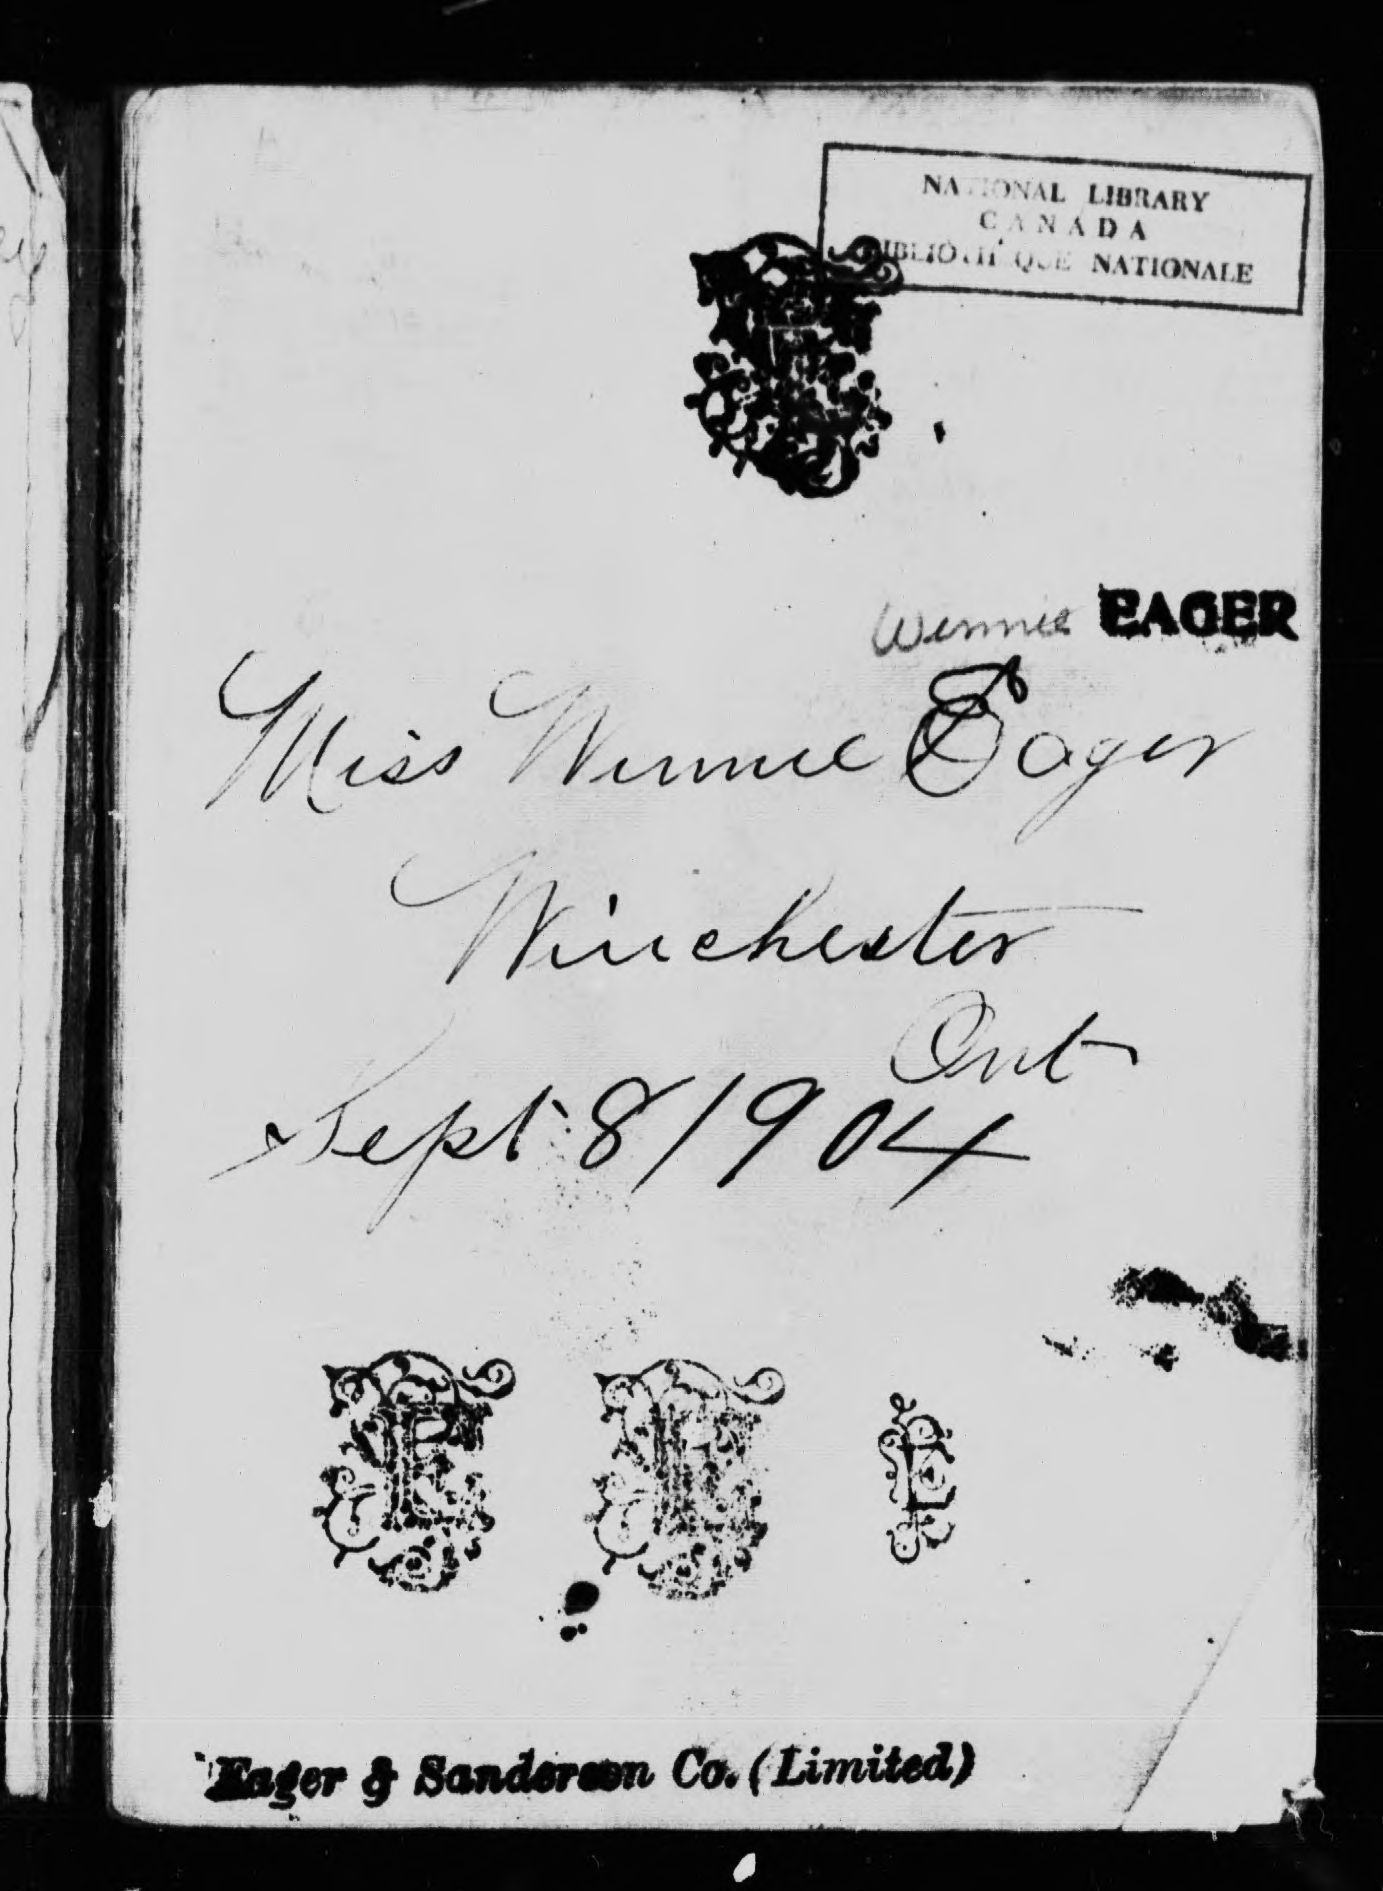 NATIONAL LIBRARY
CANADA
BIBLIOTHÈQUE NATIONALE
Winnie EAGER
Miss Winnie Eager
Winchester
Ont
Sept 8/904
E
E
E
Eager & Sanderson Co. (Limited)